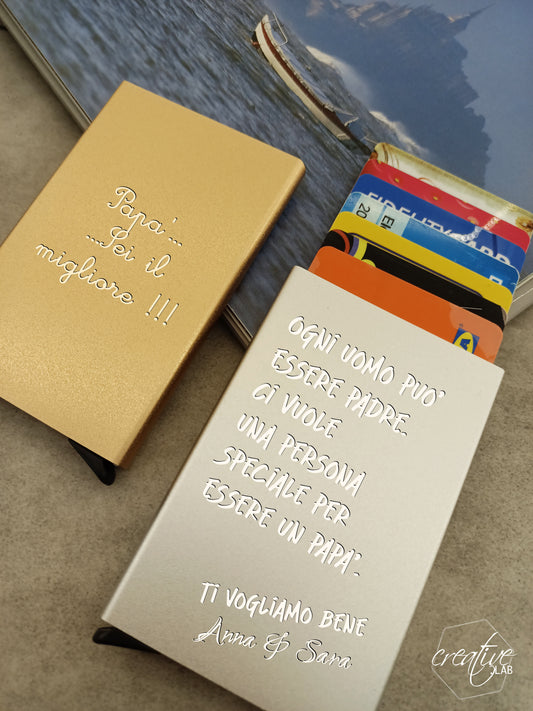 Papa'...
...Sei il
migliore !!!
OGNI UOMO PUO'
ESSERE PADRE.
CI VUOLE
UNA PERSONA
SPECIALE PER
ESSERE UN PAPA'.
TI VOGLIAMO BENE
Anna & Sara
FIDELITY CARD
20
creative
LAB